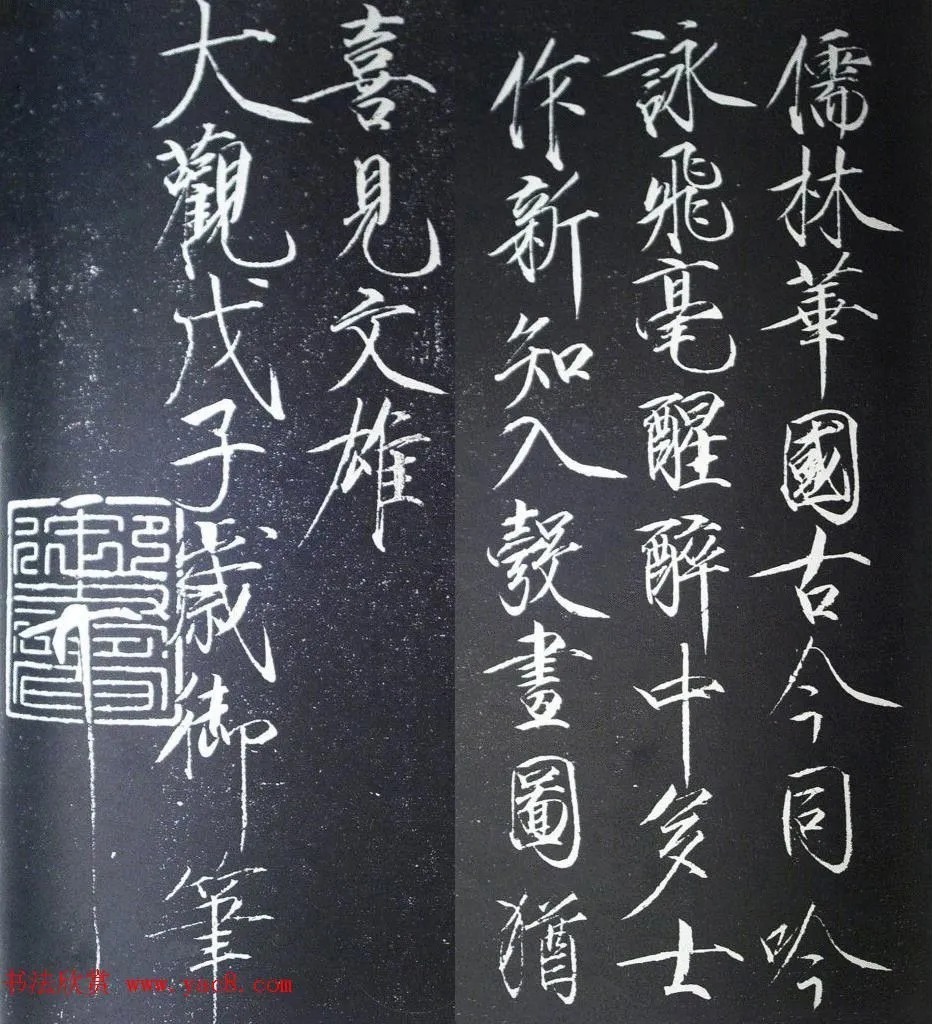 儒林華國古今同吟
詠飛毫醒醉中多士
作新知入彀畫圖猶
喜見文雄
大觀戊子歲御筆
书法欣赏 www.yac8.com